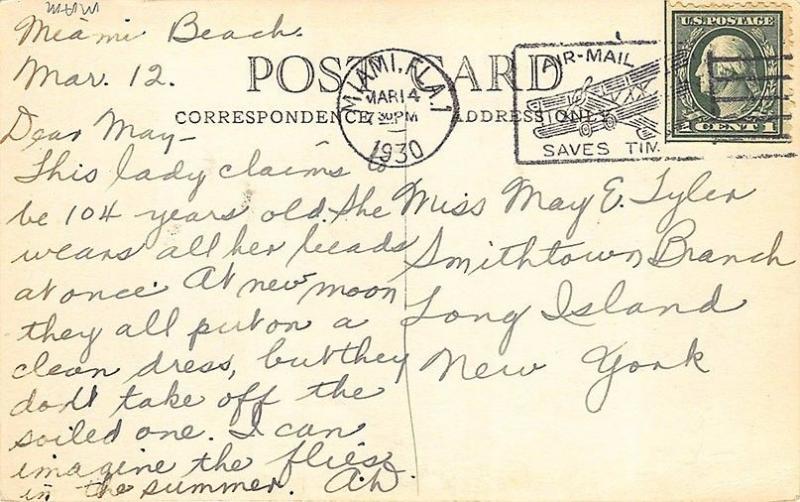 Miami
Miami Beach.
Mar. 12.
POST CARD
CORRESPONDENCE ADDRESS ONLY
MIAMI, FLA. 1
MAR 14
7 30 PM
1930
AIR-MAIL
SAVES TIM
U.S. POSTAGE
1 CENT 1
Dear May-
This lady claims
be 104 years old. She
wears all her beads
at once. At new moon
they all put on a
clean dress, but they
don't take off the
soiled one. I can
imagine the flies
in the summer. A.W.
Miss May E. Tyler
Smithtown Branch
Long Island
New York